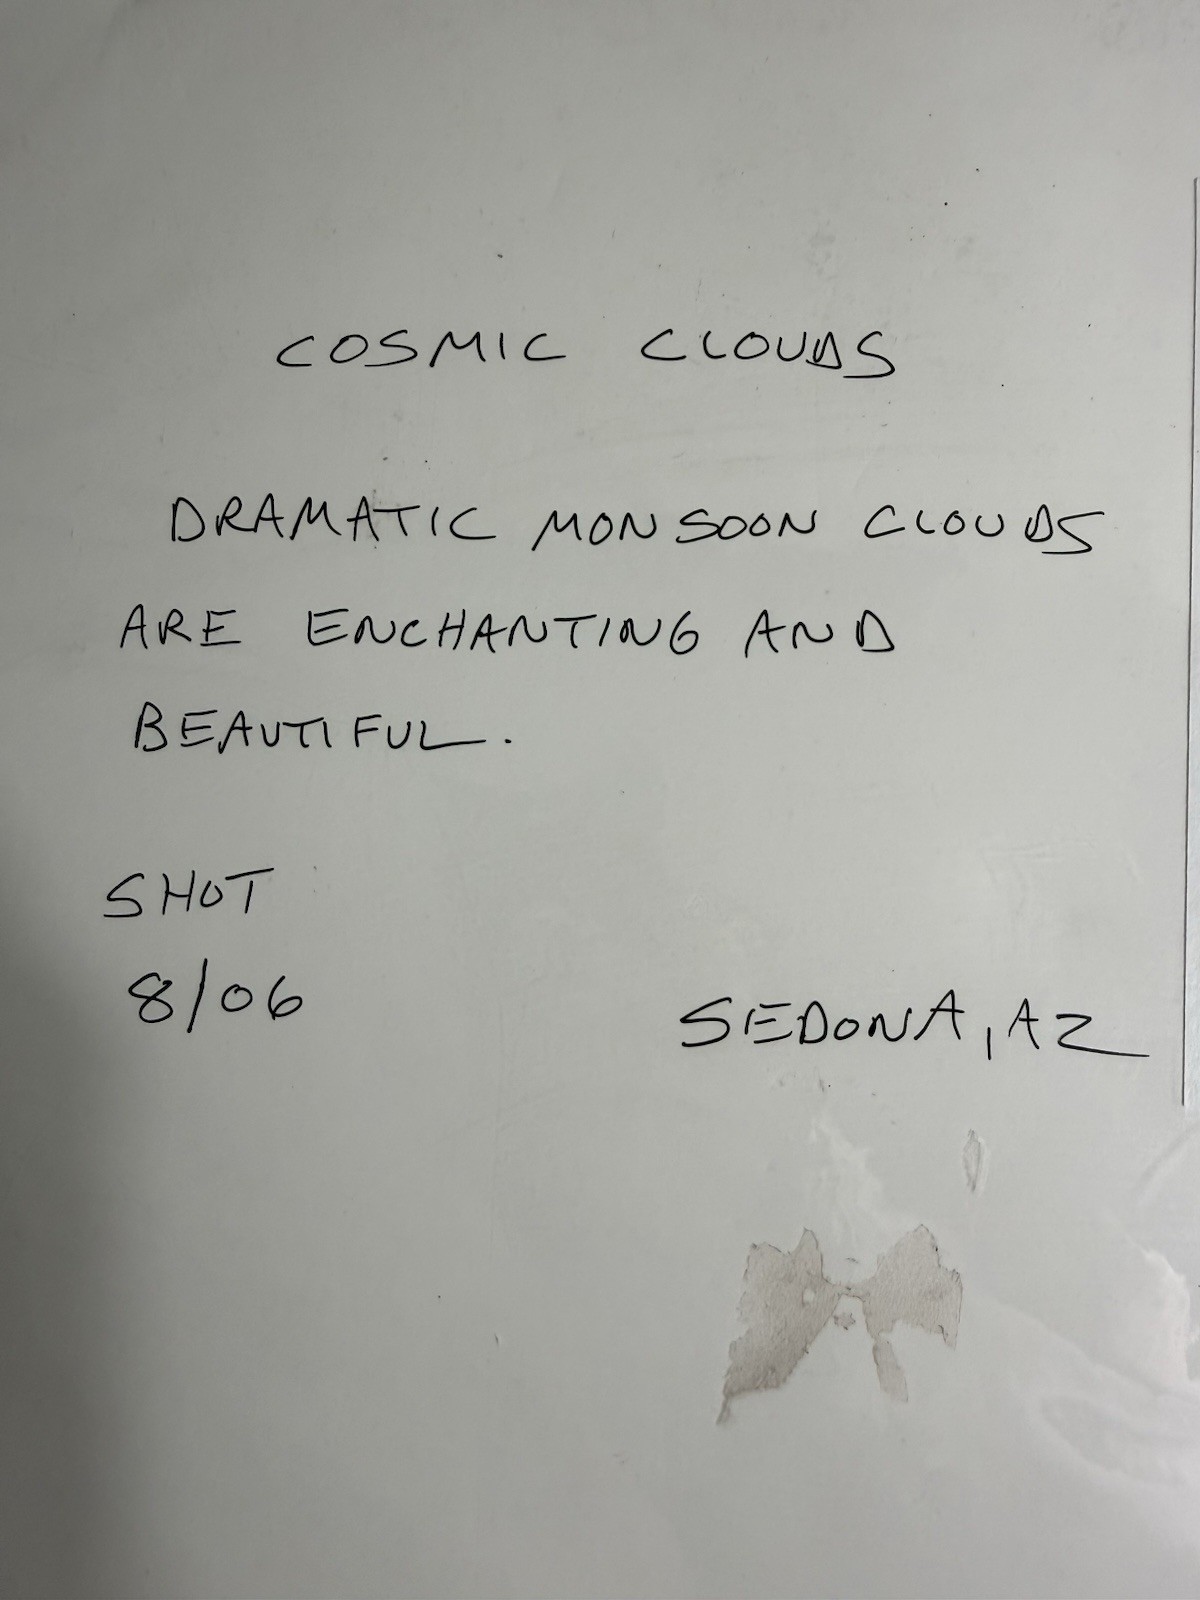 COSMIC CLOUDS
DRAMATIC MONSOON CLOUDS
ARE ENCHANTING AND
BEAUTIFUL.
SHOT
8/06
SEDONA, AZ